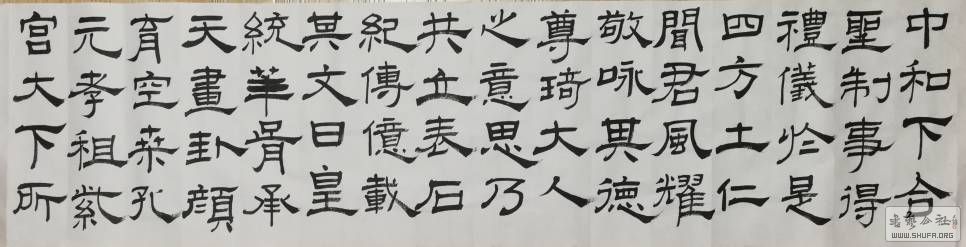 中和下合
聖制事得
禮儀於是
四方土仁
聞君風耀
敬咏其德
尊琦大人
之意思乃
共立表石
紀傳億載
其文曰皇
統華胥承
天畫卦顏
育空桑孔
元孝祖紫
宮大下所
WWW.SHUFA.ORG